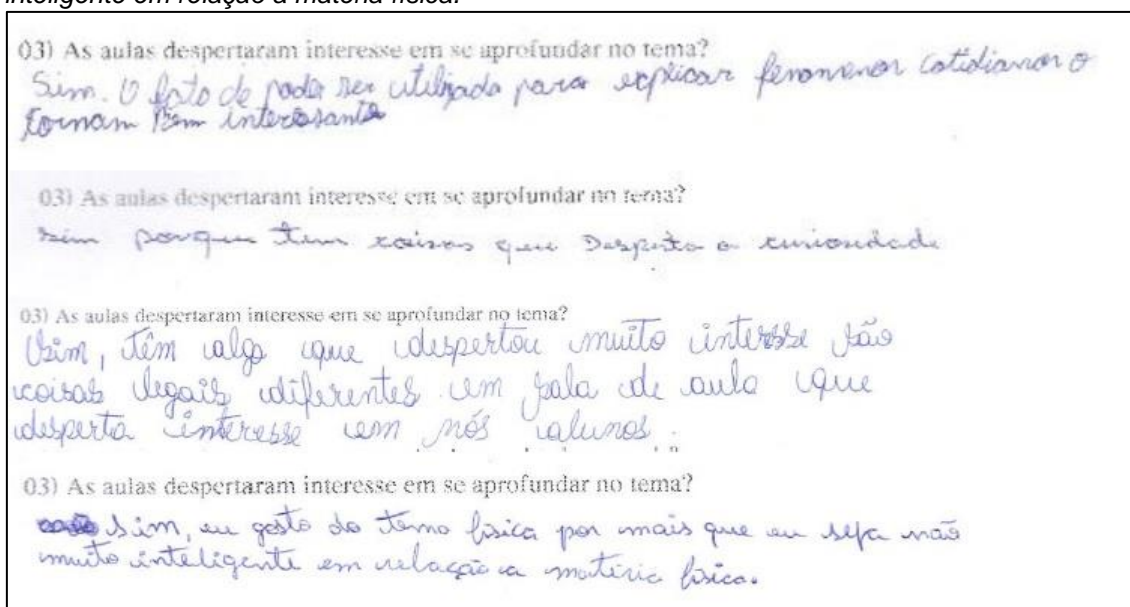 inteligente em relação a matéria física.
03) As aulas despertaram interesse em se aprofundar no tema?
Sim. O fato de poder ser utilizado para explicar fenomenos cotidianos o
tornam bem interessante
03) As aulas despertaram interesse em se aprofundar no tema?
sim porque tem coisas que Desperta a curiosidade
03) As aulas despertaram interesse em se aprofundar no tema?
Sim, têm algo que despertou muito interesse são
coisas legais diferentes em sala de aula que
desperta interesse em nós alunos.
03) As aulas despertaram interesse em se aprofundar no tema?
Sim, eu gosto do tema física por mais que eu seja não
muito inteligente em relação a matéria física.